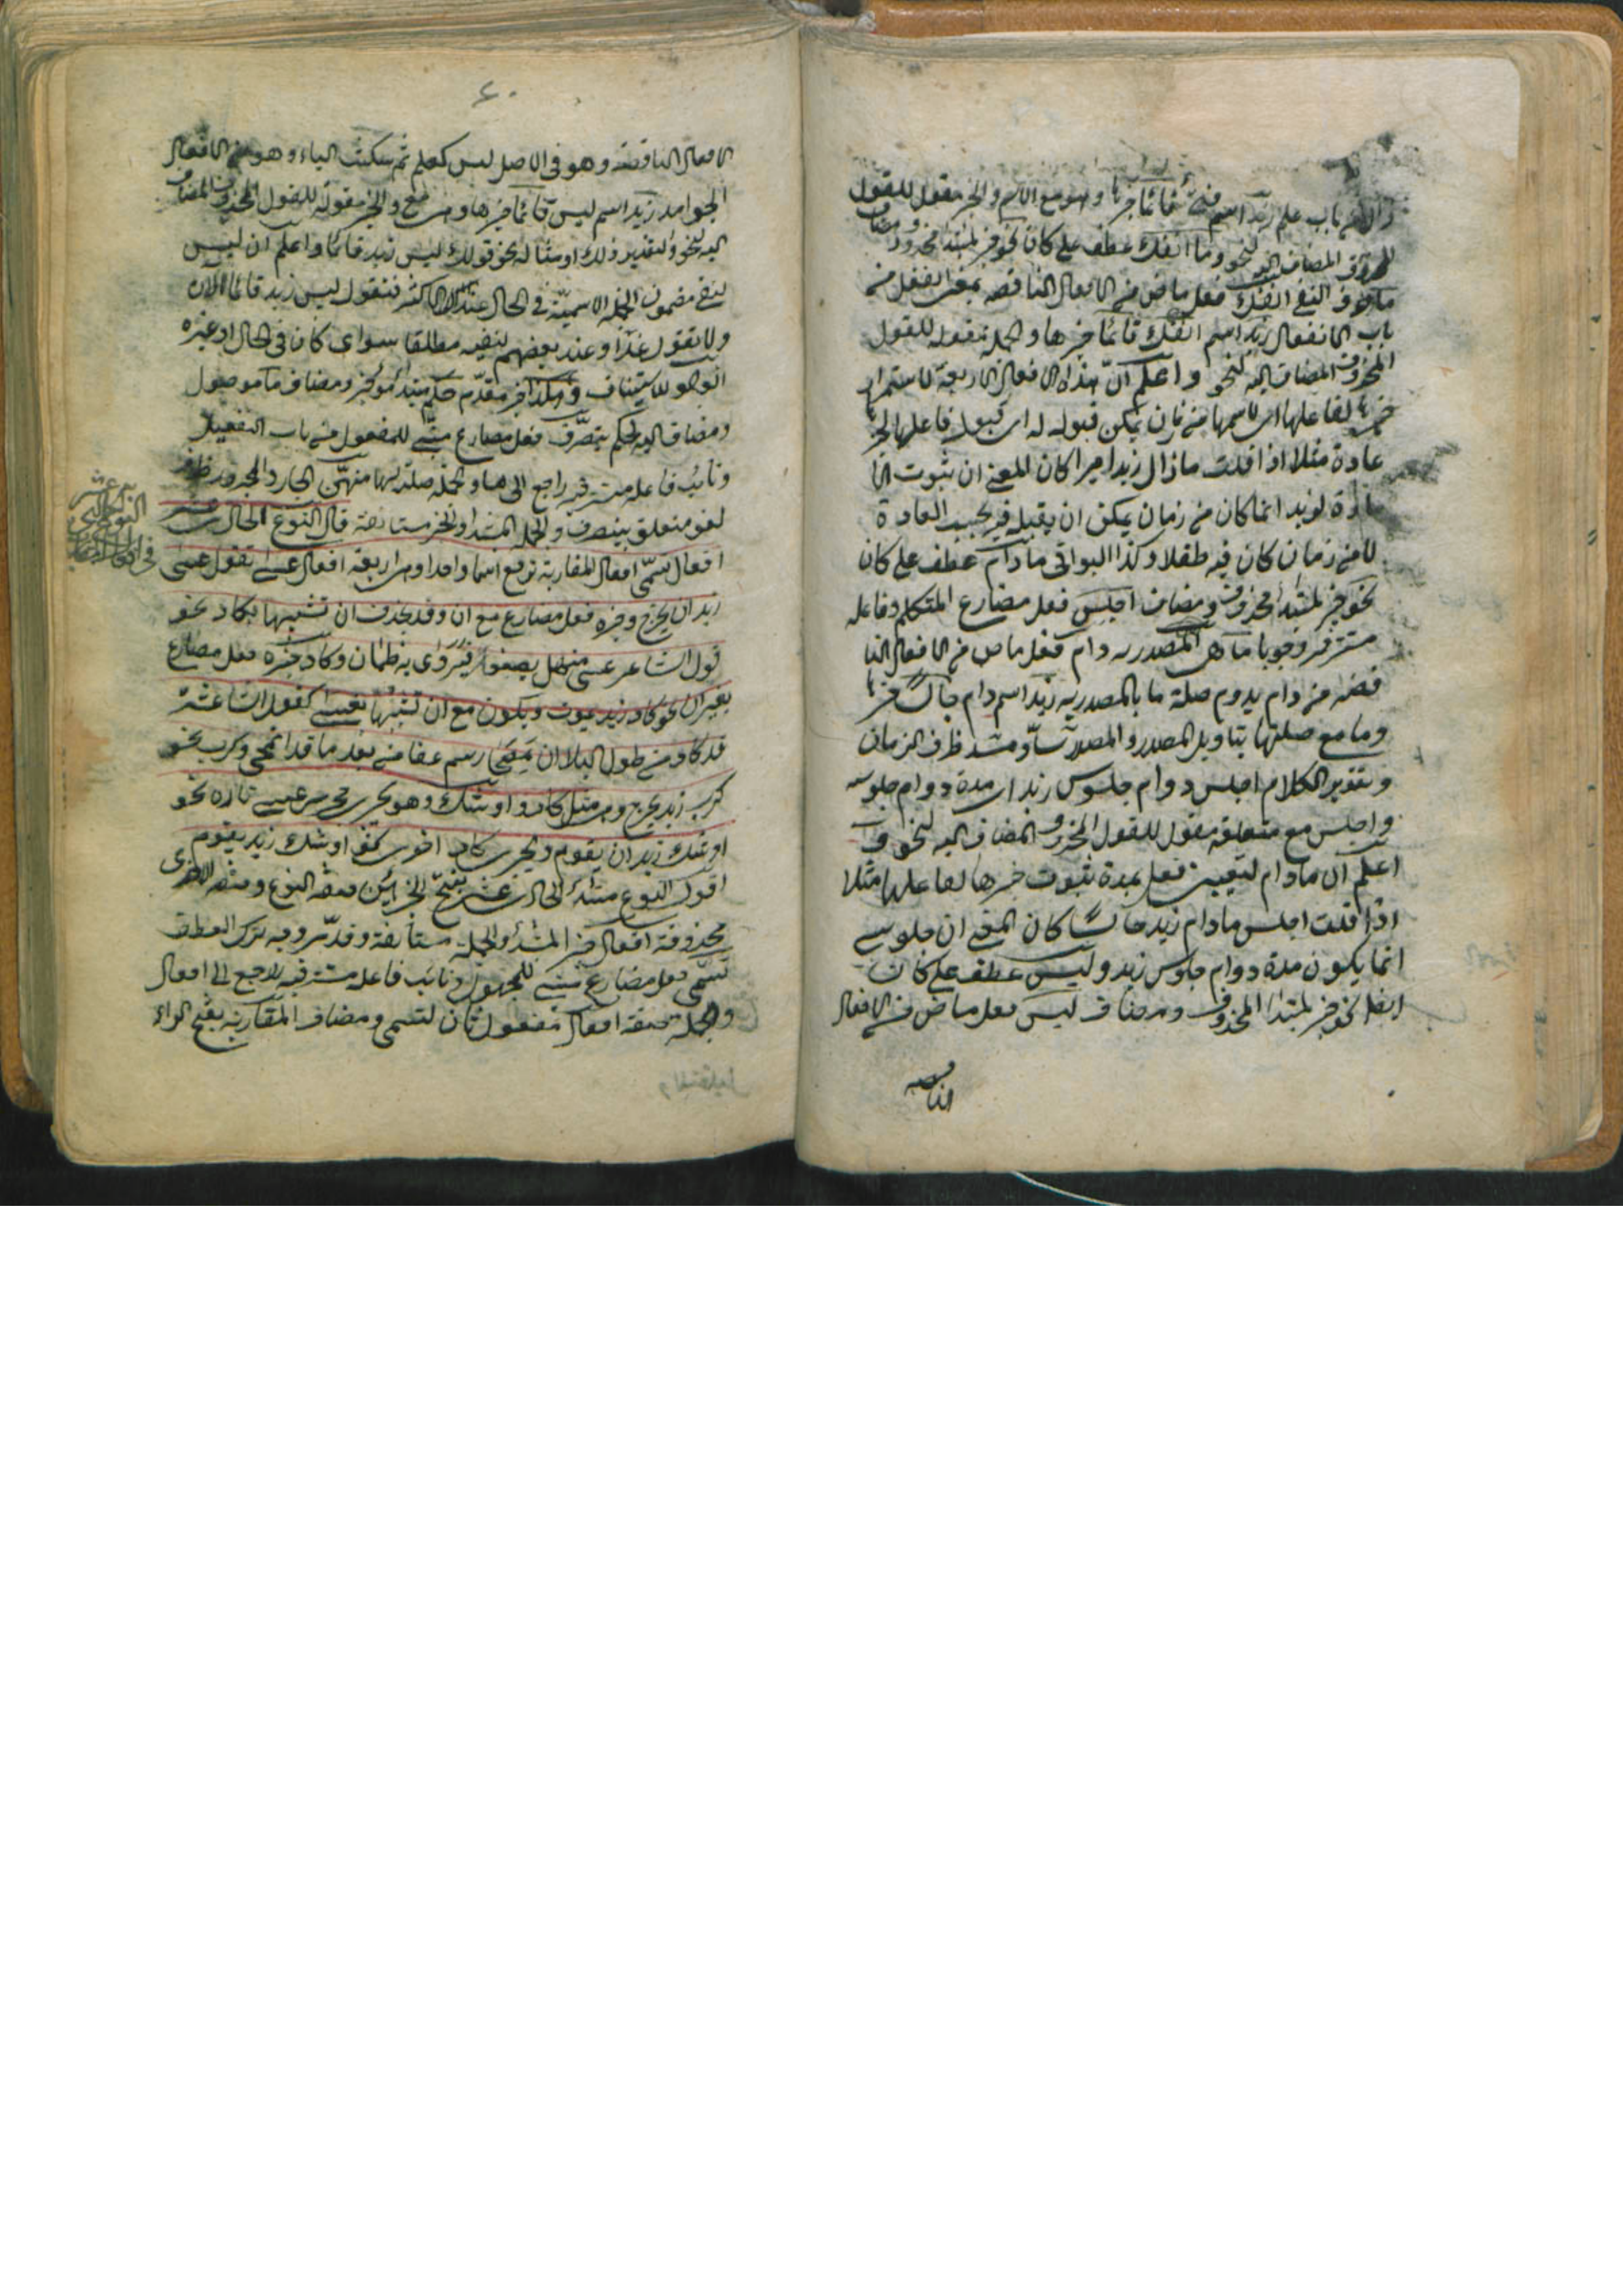 باب علم زيد اسم فتئ قائما خبرها وهو مع الاسم والخبر مقول للقول
المحذوف المضاف اليه لنحو وما انفك عطف على كان نحو خبر لمبتدأ محذوف ومضاف
ما حرف النفى انفك فعل ماض من الافعال الناقصه بمعنى انفعل من
باب الانفعال زيد اسم انفك قائما خبرها والجملة مقوله للقول
المحذوف المضاف اليه لنحو واعلم ان هذه الافعال الاربعة لاستمرار
خبرها لفاعلها اى لاسمها من زمان يمكن قبوله له اى قبول فاعلها الخبر
عادة مثلا اذا قلت ما زال زيد اميرا كان المعنى ان ثبوت الا
مارة لزيد انما كان من زمان يمكن ان يقبله فيه بحسب العادة
لا من زمان كان فيه طفلا وكذا البواقى ما دام عطف على كان
نحو خبر لمبتدأ محذوف ومضاف اجلس فعل مضارع المتكلم وفاعله
مستتر فيه وجوبا ما هى المصدريه دام فعل ماض من الافعال النا
قصه من دام يدوم صلة ما بالمصدريه زيد اسم دام جالسا خبرها
وما مع صلتها بتاويل المصدر والمصدر ظرف الزمان
وتقدير الكلام اجلس دوام جلوس زيد اى مدة دوام جلوسه
واجلس مع متعلقه مقول للقول المحذوف المضاف اليه لنحو
اعلم ان ما دام لتعيين فعل بمدة ثبوت خبرها لفاعلها مثلا
اذا قلت اجلس ما دام زيد جالسا كان المعنى ان جلوسى
انما يكون مدة دوام جلوس زيد وليس عطف على كان
ايضا نحو خبر لمبتدا المحذوف ومضاف ليس فعل ماض من الافعال
الناقصه
٤٠
الافعال الناقصة وهو فى الاصل ليس كعلم ثم سكنت الياء وهو من الافعال
الجوامد زيد اسم ليس قائما خبرها وهى مع والخبر مقولة للقول المحذوف المضاف
اليه لنحو والتقدير ذلك او مثاله نحو قولك ليس زيد قائما واعلم ان ليس
لنفى مضمون الجملة الاسمية فى الحال عند الاكثر فتقول ليس زيد قائما الآن
ولا تقول غدا وعند بعضهم لنفيه مطلقا سواى كان فى الحال او غيره
الواو للاستيناف وهكذا خبر مقدم حكم مبتدأ مؤخر ومضاف ما موصول
ومضاف اليه لحكم يتصرف فعل مضارع مبنى للمفعول من باب التفعيل
ونائب فاعله مستتر فيه راجع الى ما والجملة صلة لها منهن الجار والمجرور ظرف
لغو متعلق بيتصرف والجملة المبتدأ والخبر مستانفة قال النوع الحادى عشر
افعال تسمى افعال المقاربة ترفع اسما واحدا وهى اربعة افعال عسى تقول عسى
زيد ان يخرج وخبره فعل مضارع مع ان وقد يحذف ان تشبيها بكاد نحو
قول الشاعر عسى منهل يصفو فيروى به ظمآن وكاد خبره فعل مضارع
بغير ان نحو كاد زيد يموت ويكون مع ان تشبيها بعسى كقول الشاعر
قد كاد من طول البلا ان يمصحا رسم عفا من بعد ما قد انمحى وكرب نحو
كرب زيد يخرج وهى مثل كاد واوشك وهو يجرى مجرى عسى تارة نحو
اوشك زيد ان يقوم ويجرى كاد اخرى نحو اوشك زيد يقوم
اقول النوع مبتدأ الحادى عشر بفتح الجزأين صفة النوع وصفة الاخرى
محذوفة افعال خبر المبتدأ والجملة مستأنفة وقد مر وجه ترك العطف
تسمى فعل مضارع مبنى للمجهول ونائب فاعله مستتر فيه راجع الى افعال
والجملة صفة افعال مفعول ثان لتسمى ومضاف المقاربة بفتح الراء
النوع الحادى عشر